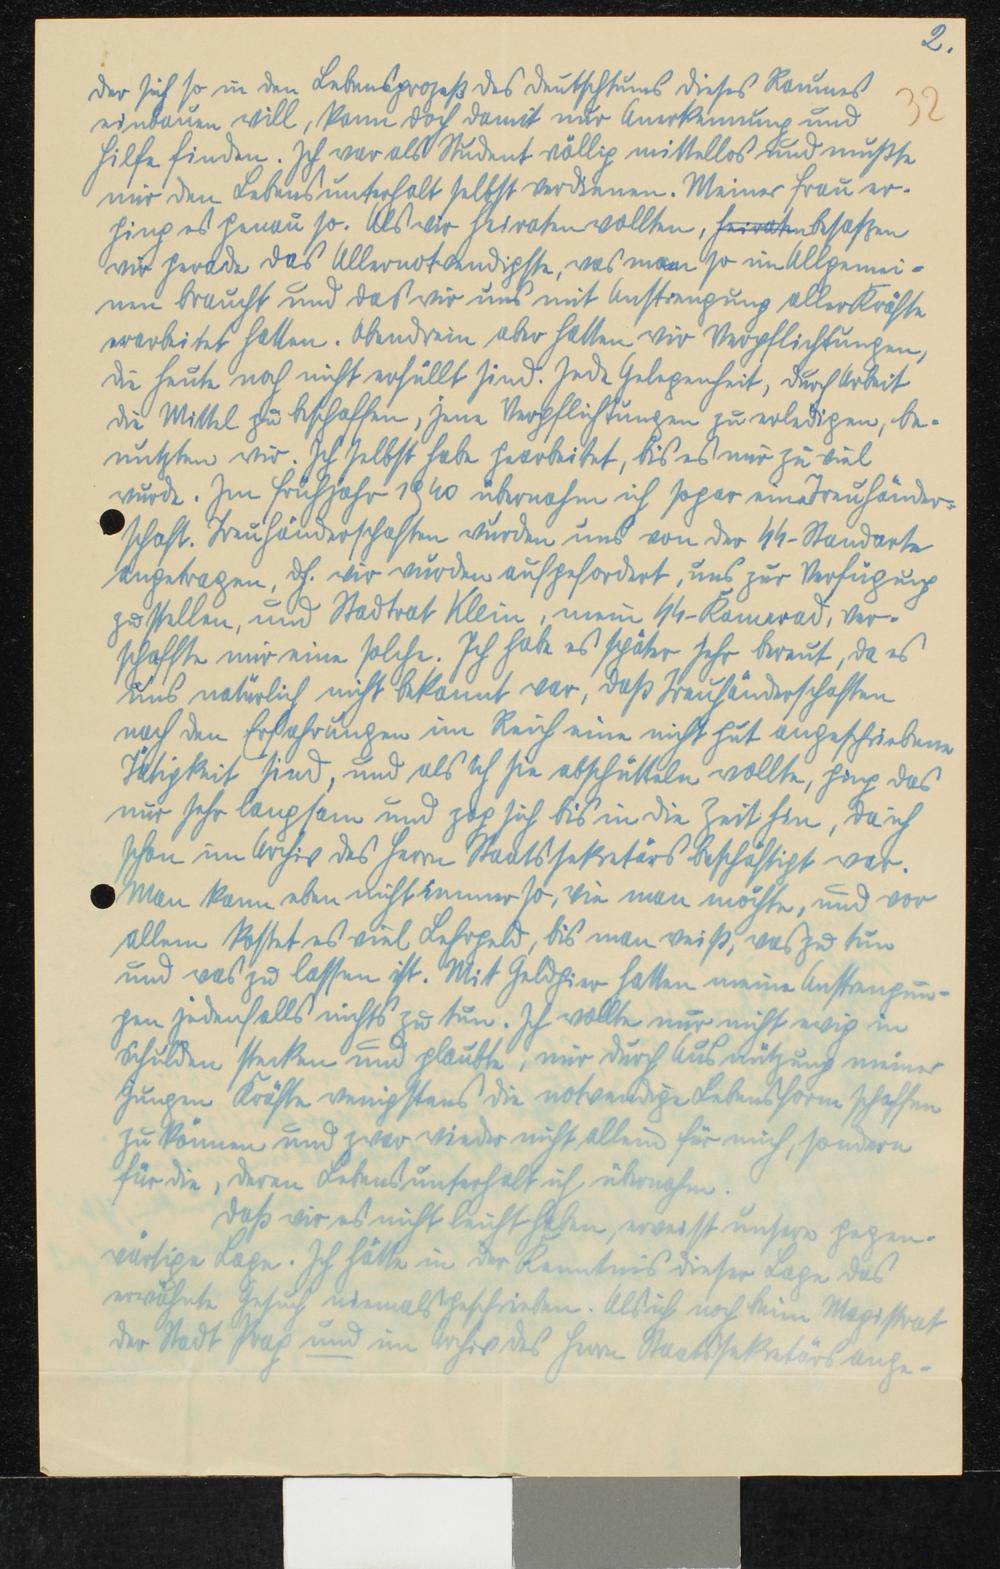 2.
32
der sich so in den Lebensprozeß des Deutschtums dieses Raumes
einbauen will, kann doch damit nur Anerkennung und
Hilfe finden. Ich war als Student völlig mittellos und mußte
mir den Lebensunterhalt selbst verdienen. Meiner Frau er-
ging es genau so. Als wir heiraten wollten, heiraten besaßen
wir gerade das Allernotwendigste, was man so im Allgemei-
nen braucht und das wir uns mit Anstrengung aller Kräfte
erarbeitet hatten. Obendrein aber hatten wir Verpflichtungen,
die heute noch nicht erfüllt sind. Jede Gelegenheit, durch Arbeit
die Mittel zu beschaffen, jene Verpflichtungen zu erledigen, be-
nutzten wir. Ich selbst habe gearbeitet, bis es mir zu viel
wurde. Im Frühjahr 1940 übernahm ich sogar eine Treuhänder-
schaft. Treuhänderschaften wurden uns von der SS-Standarte
angetragen, dh. wir wurden aufgefordert, uns zur Verfügung
zu stellen, und Stadtrat Klein, mein SS-Kamerad, ver-
schaffte mir eine solche. Ich habe es später sehr bereut, da es
uns natürlich nicht bekannt war, daß Treuhänderschaften
nach den Erfahrungen im Reich eine nicht gut angeschriebene
Tätigkeit sind, und als ich sie abschütteln wollte, ging das
nur sehr langsam und zog sich bis in die Zeit hin, da ich
schon im Archiv des Herrn Staatssekretärs beschäftigt war.
Man kann eben nicht immer so, wie man möchte, und vor
allem kostet es viel Lehrgeld, bis man weiß, was zu tun
und was zu lassen ist. Mit Geldgier hatten meine Anstrengun-
gen jedenfalls nichts zu tun. Ich wollte nur nicht ewig in
Schulden stecken und glaubte, mir durch Ausnützung meiner
jungen Kräfte wenigstens die notwendige Lebensform schaffen
zu können und zwar wieder nicht allein für mich, sondern
für die, deren Lebensunterhalt ich übernahm.
Daß wir es nicht leicht haben, erweist unsere gegen-
wärtige Lage. Ich hätte in der Kenntnis dieser Lage das
erwähnte Gesuch niemals geschrieben. Als ich noch beim Magistrat
der Stadt Prag und im Archiv des Herrn Staatssekretärs ange-